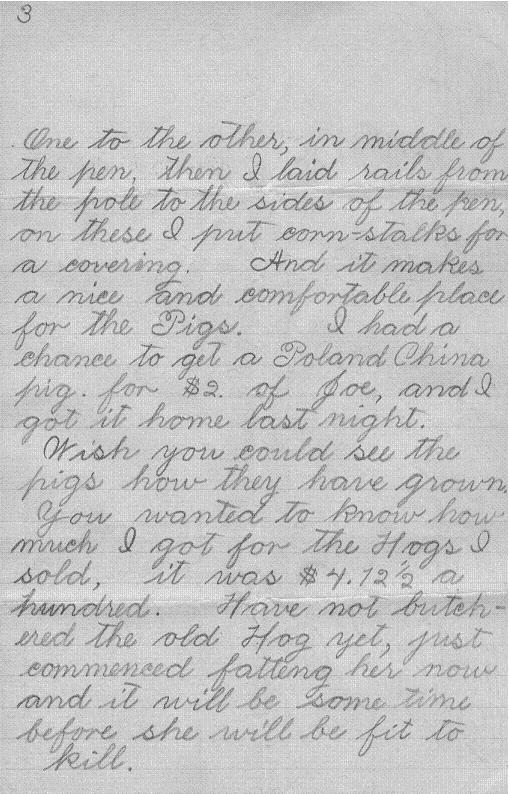 3
One to the other, in middle of
the pen, then I laid rails from
the pole to the sides of the pen,
on these I put corn-stalks for
a covering. And it makes
a nice and comfortable place
for the Pigs. I had a
chance to get a Poland China
pig. for $2. of Joe, and I
got it home last night.
Wish you could see the
pigs how they have grown.
You wanted to know how
much I got for the Hogs I
sold, it was $4.12½ a
hundred. Have not butch-
ered the old Hog yet, just
commenced fatteng her now
and it will be some time
before she will be fit to
kill.